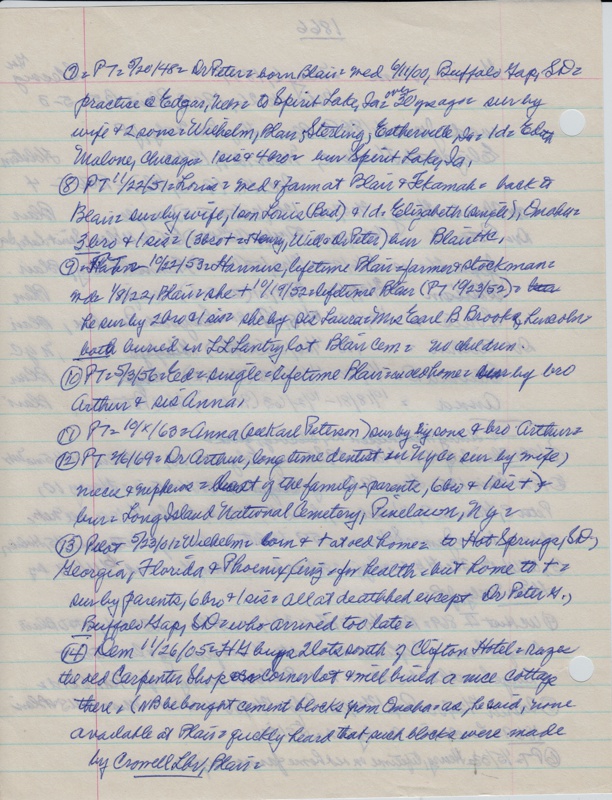 ⑦ = PT = 5/20/48 = Dr Peter = born Blair = med 6/11/00, Buffalo Gap, SD =
practice @ Edgar, Neb = to Spirit Lake, Ia = over 30 yrs ago = sur by
wife & 2 sons = Wilhelm, Blair, Sterling, Estherville, Ia = 1 d =
Malone, Chicago = 1 sis & 4 bro = bur Spirit Lake, Ia,
⑧ PT 11/22/51 = Louis = med & farm at Blair & Tekamah = back to
Blair = sur by wife, 1 son Louis (Bud) & 1 d = Elizabeth (single), Omaha =
3 bro & 1 sis = (3 bro + = Henry, Dr Peter) bur Blair
⑨ = 10/22/53 = Hannus, lifetime Blair = farmer & stockman =
1/8/22, Blair = she + 10/19/52 = lifetime Blair (PT 10/23/52) =
he sur by 2 bro & 1 sis = she by sis Laura = Mrs Earl B Brooks,
both buried in LL Lantry lot Blair Cem = no children
⑩ PT = 5/3/56 = Ted = single = lifetime Blair = home = by bro
Arthur & sis Anna,
⑪ PT = 10/x/63 = Anna (see Karl Peterson) sur by sons & bro Arthur =
⑫ PT 2/6/69 = Dr Arthur, long time dentist in Nybo sur by wife,
nieces & nephews = last of the family = parents, 6 bro & 1 sis +
bur = Long Island National Cemetery, Pinelawn, N y =
⑬ Pilot 5/23/01 = Wilhelm = born & + at old home = to Hot Springs, SD,
Georgia, Florida & Phoenix, Ariz = for health = but home to + =
sur by parents, 6 bro & 1 sis = all at deathbed except Dr Peter H.,
Buffalo Gap, SD = who arrived too late =
⑭ Dem 11/26/05 = HG buys 2 lots south of Clifton Hotel =
the old Carpenter Shop corner lot & will build a nice cottage
there, (NB he bought cement blocks from Omaha = as, he said, none
available at Blair = quickly heard that such blocks were made
by Crowell Lbr, Blair =